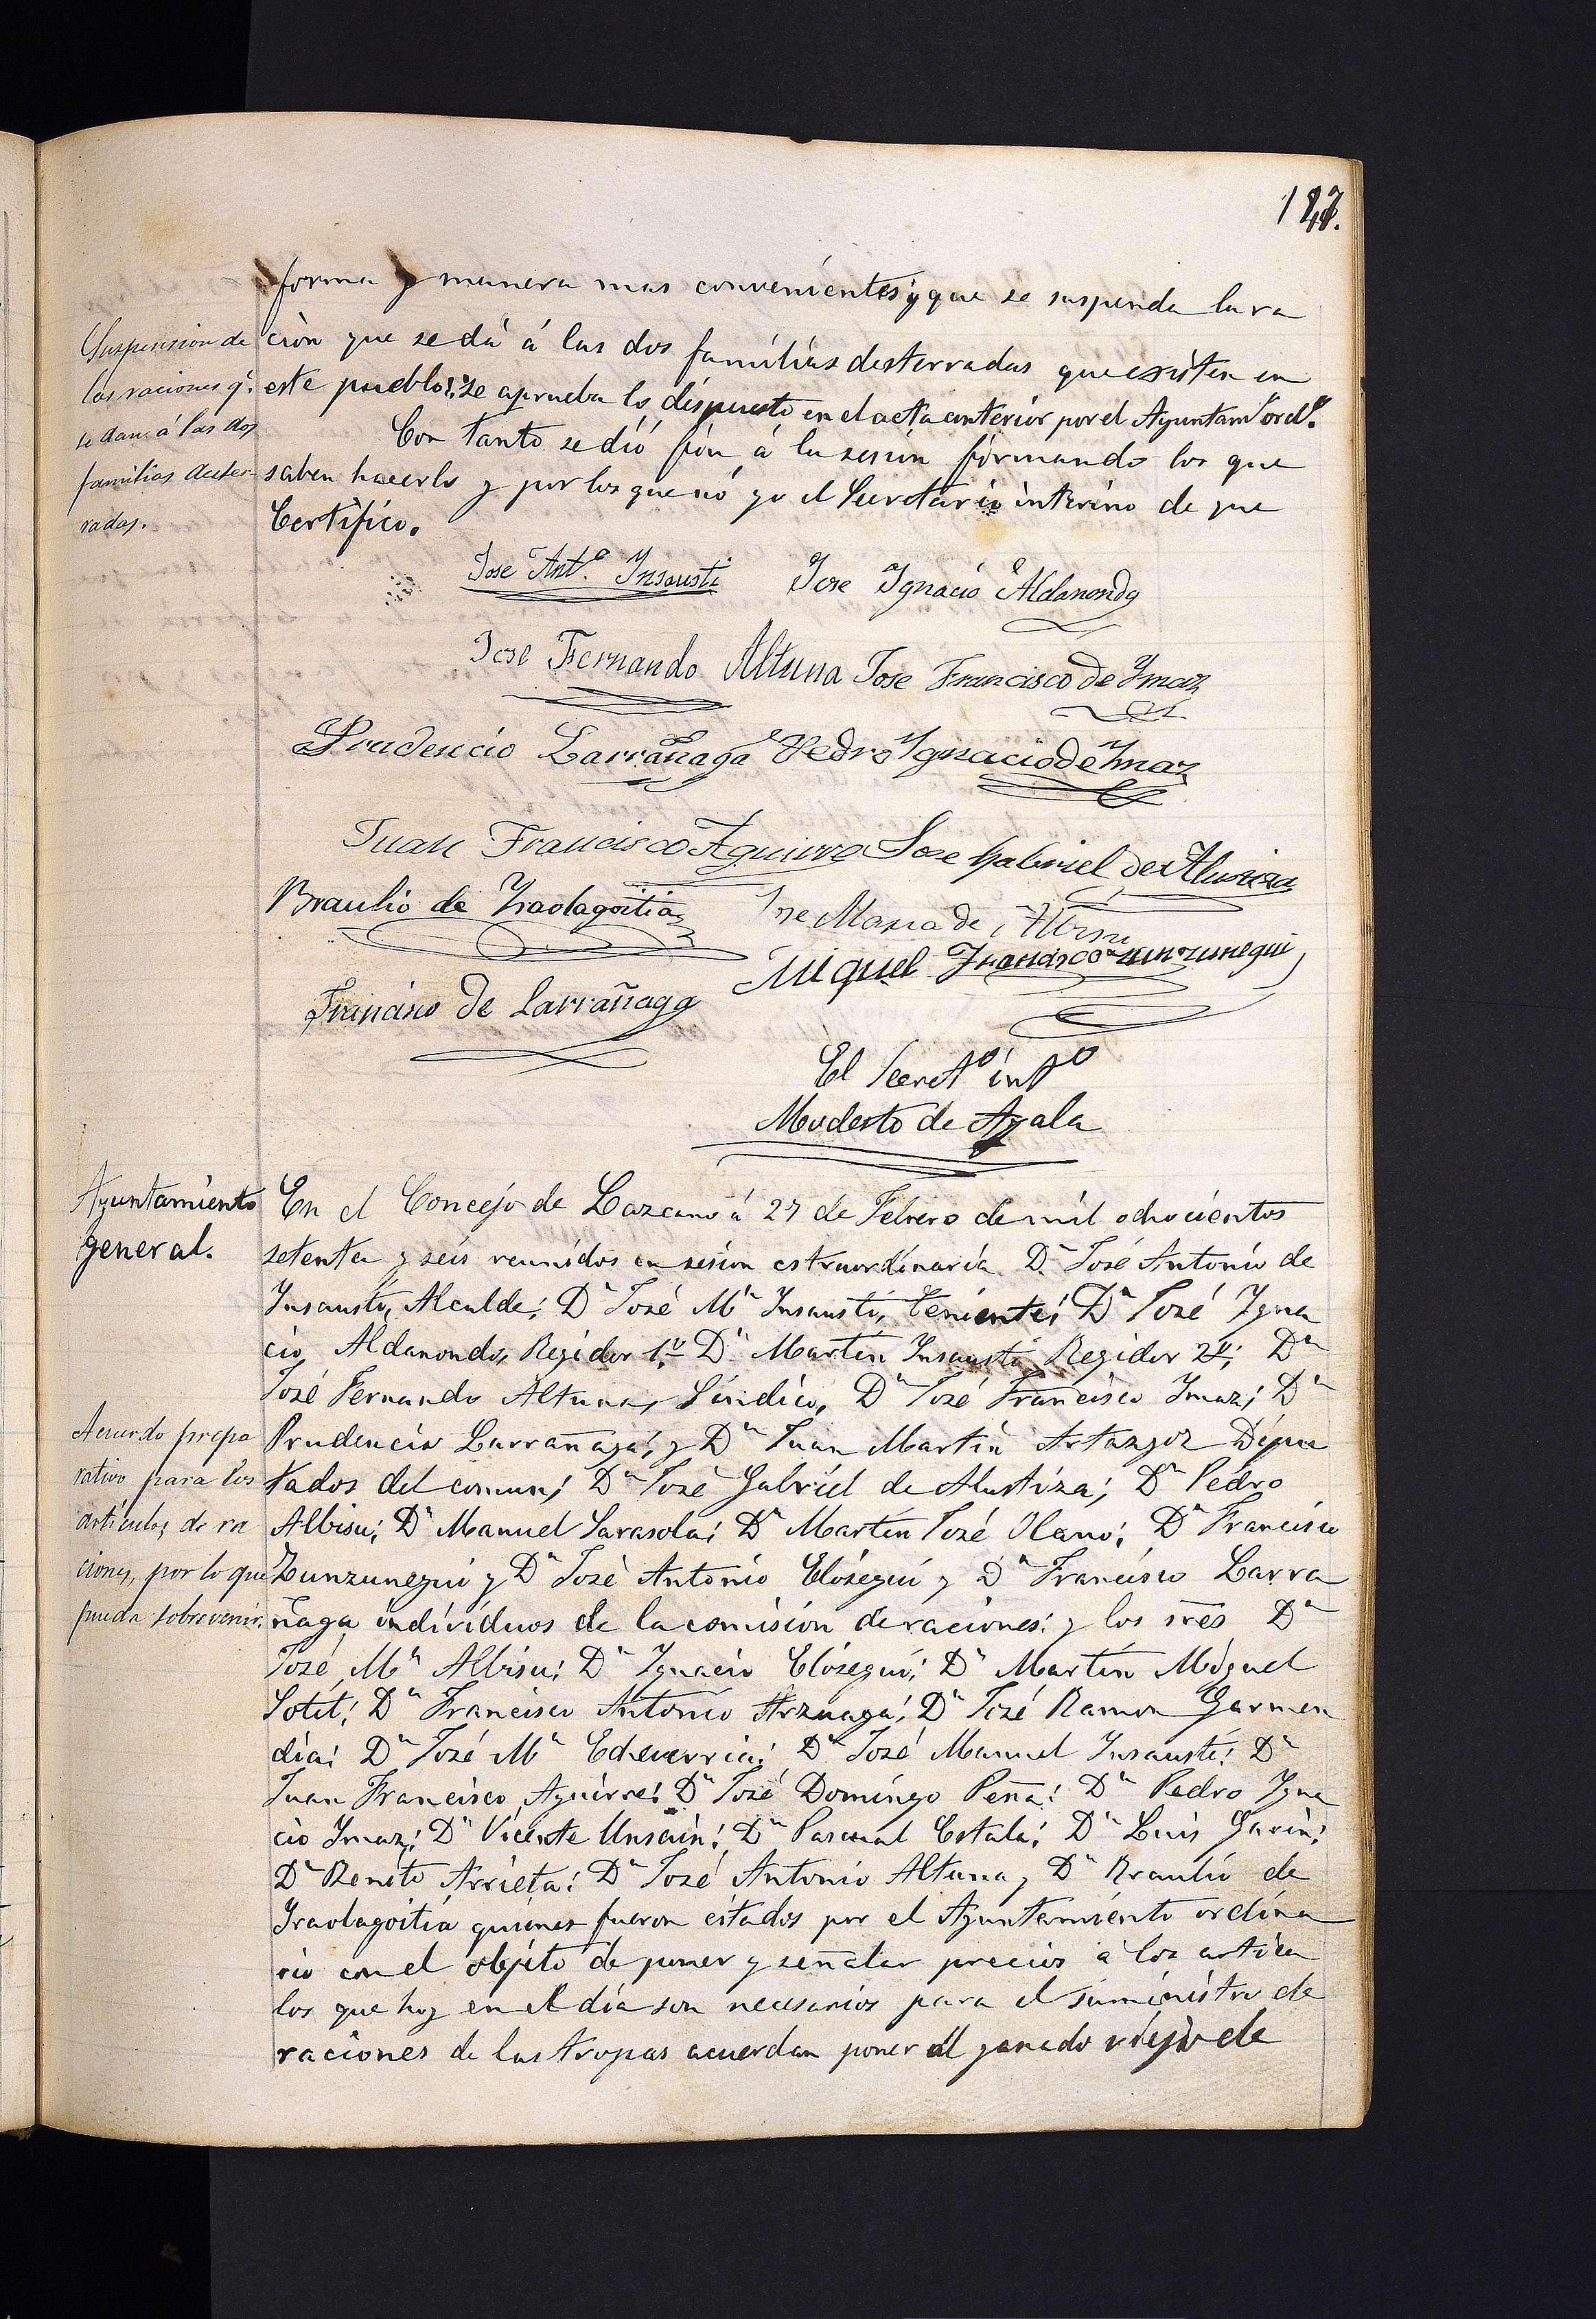 127.
forma y manera mas convenientes y que se suspenda la ra
Suspension de
las raciones q.
se dan á las dos
familias dester
radas.
ción que se dá á las dos familias desterradas que existen en
este pueblo: se aprueba lo dispuesto en el acta anterior por el Ayuntam.to ord.o
Con tanto se dió fin á la sesion firmando los que
saben hacerlo y por los que nó yo el Secretario interino de que
Certifico.
Jose Ant.o Insausti Jose Ignacio Aldanondo
Jose Fernando Altuna Jose Francisco de Ymaz
Prudencio Larrañaga Pedro Ygnacio de Ymaz
Juan Francisco Aguirre Jose Gabriel de Alustiza
Braulio de Yraolagoitia Jose Maria de Albisu
Miguel Francisco Zunzunegui
Francisco de Larrañaga
El Secret.o int.o
Modesto de Ayala
Ayuntamiento
general.
En el Concejo de Lazcano á 27 de Febrero de mil ochocientos
setenta y seis reunidos en sesion estraordinaria D.n José Antonio de
Insausti, Alcalde; D.n José M.a Insausti, Teniente; D.n José Ygna
cio Aldanondo, Regidor 1.o D.n Martin Insausti Regidor 2.o; D.n
José Fernando Altuna, Síndico, D.n José Francisco Ymaz; D.n
Acuerdo prepa
rativo para los
articulos de ra
ciones, por lo que
pueda sobrevenir.
Prudencio Larrañaga; y D.n Juan Martin Artazcoz Dipu
tados del comun; D.n José Gabriel de Alustiza; D.n Pedro
Albisu; D.n Manuel Sarasola; D.n Martin José Olano; D.n Francisco
Zunzunegui y D.n José Antonio Elósegui y D.n Francisco Larra
ñaga individuos de la comision de raciones: y los sres D.n
José M.a Albisu; D.n Ygnacio Elósegui; D.n Martin Miguel
Sotil; D.n Francisco Antonio Arzuaga; D.n José Ramon Garmen
dia; D.n José M.a Echeverria; D.n José Manuel Insausti; D.n
Juan Francisco Aguirre; D.n José Domingo Peña; D.n Pedro Ygna
cio Ymaz; D.n Vicente Unsain; D.n Pascual Estala; D.n Luis Garin;
D.n Benito Arrieta; D.n José Antonio Altuna, D.n Braulio de
Yraolagoitia quienes fueron citados por el Ayuntamiento ordina
rio con el objeto de poner y señalar precios á los articu
los que hoy en el dia son necesarios para el suministro de
raciones de las tropas acuerdan poner al ganado viejo de